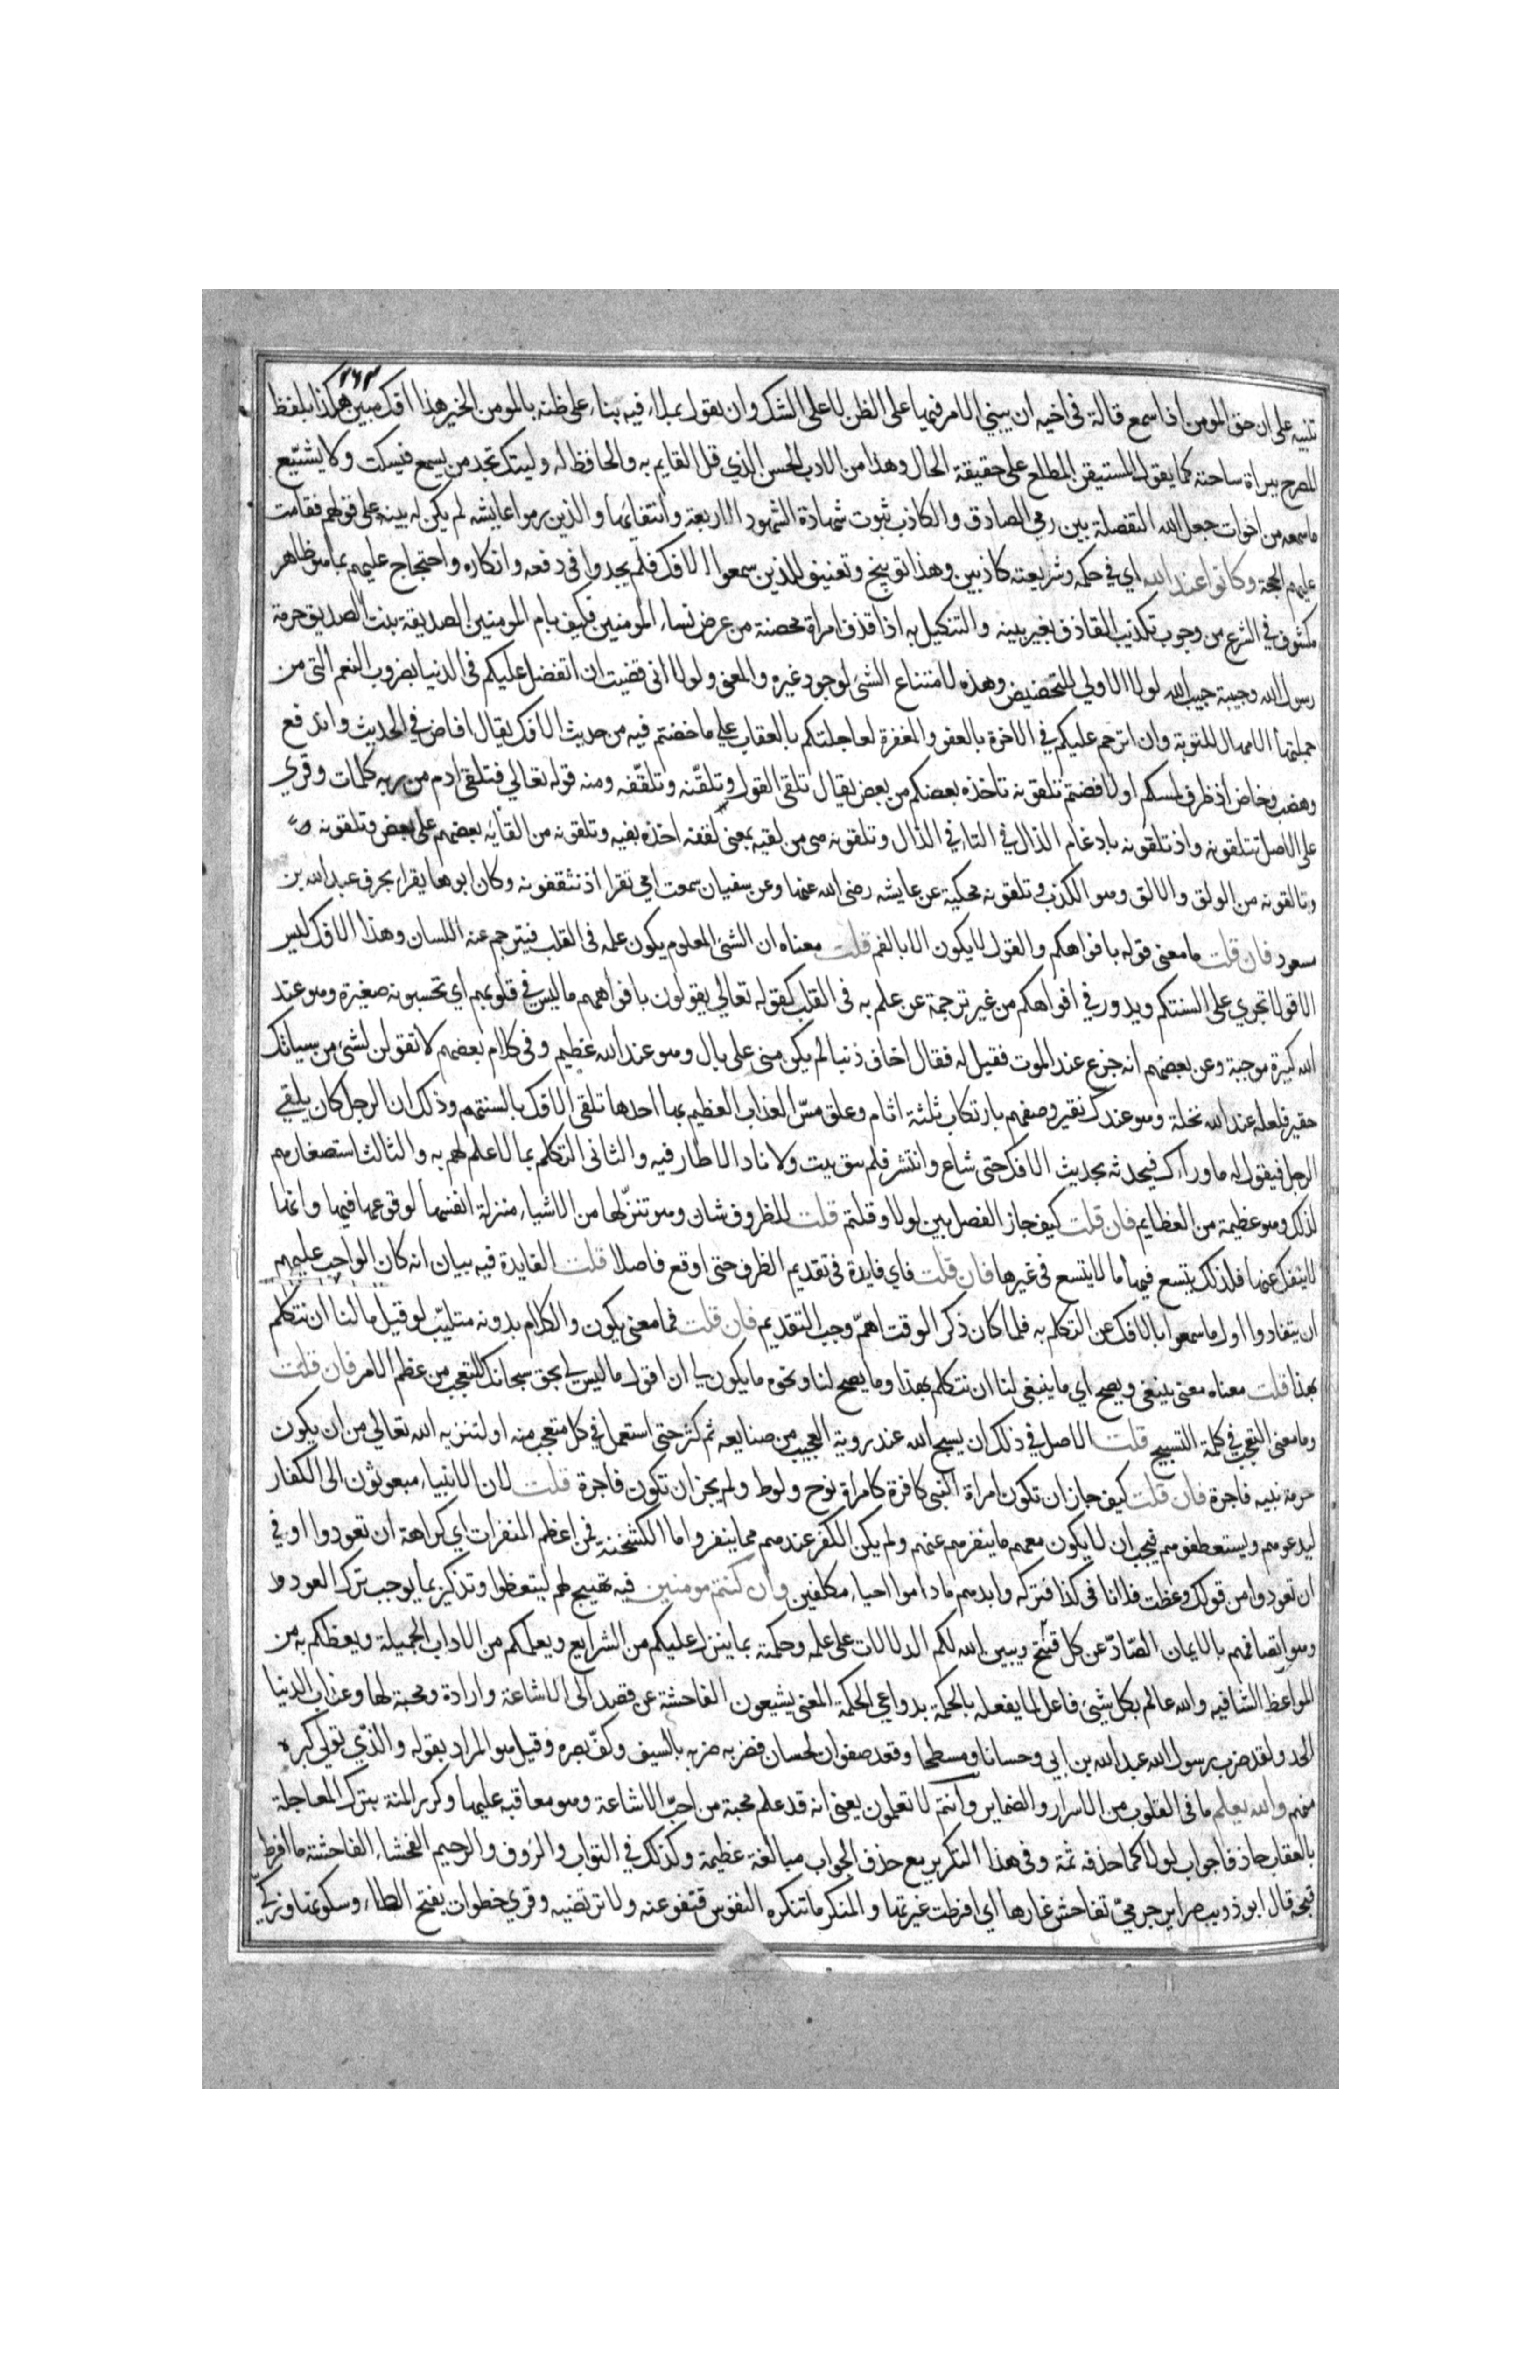 ٢٦٣
تنبيه على ان حق المومن اذا سمع قالة في اخيه ان يبني الامر فيها على الظن لا على الشك وان يقول بملاء فيه بناء على ظنه بالمومن الخير هذا افك مبين هكذا بلفظ
المصرح ببراة ساحته كما يقول المستيقن المطلع على حقيقة الحال وهذا من الادب الحسن الذي قل القايم به والحافظ له وليتك تجد من يسمع فيسكت ولا يشيّع
ما سمعه من اخوات جعل الله التفصلة بين رمي الصادق والكاذب ثبوت شهادة الشهود الاربعة وانتفايها والذين رموا عايشه لم يكن له بينة على قولهم فقامت
عليهم الحجة وكانوا عند الله اي في حكمه وشريعته كاذبين وهذا توبيخ وتعنيف للذين سمعوا الافك فلم يجدوا في دفعه وانكاره واحتجاج عليهم بما هو ظاهر
مكشوف في الشرع من وجوب تكذيب القاذف بغير بينه والتنكيل به اذا قذف امراة محصنة من عرض نساء المومنين فكيف بام المومنين الصديقة بنت الصديق حرمة
رسول الله وحبيبة حبيب الله لولا الاولي للتحضيض وهذه لامتناع الشئ لوجود غيره والمعنى ولولا انى قضيت ان اتفضل عليكم في الدنيا بضروب النعم التى من
جملتها الامهال للتوبة وان اترحم عليكم في الاخرة بالعفو والمغفرة لعاجلتكم بالعقاب على ما خضتم فيه من حديث الافك يقال افاض في الحديث واندفع
وهضب وخاض اذ ظرف لمسكم او لافضتم تلقونه تاخذه بعضكم من بعض يقال تلقى القول وتلقّنه وتلقّفه ومنه قوله تعالي فتلقى ادم من ربه كلمات وقري
على الاصل تتلقونه واذ تلقونه بادغام الذال في التاء في الذال وتلقونه من لقيه بمعنى لقفه اخذه بفيه وتلقونه من القايه بعضهم على بعض وتلقونه
وتالقونه من الولق والالق وهو الكذب وتلقونه محكية عن عايشه رضى الله عنها وعن سفيان سمعت امي تقرا اذ تثقفونه وكان ابوها يقرا بحرف عبد الله بن
سعود فان قلت ما معنى قوله بافواهكم والقول لا يكون الا بالفم قلت معناه ان الشئ المعلوم يكون علمه في القلب فيترجم عنه اللسان وهذا الافك ليس
الا قولا تجري على السنتكم ويدور في افواهكم من غير ترجمة عن علم به في القلب كقوله تعالي يقولون بافواههم ما ليس في قلوبهم اي تحسبونه صغيرة وهو عند
الله كبيرة موجبة وعن بعضهم انه جزع عند الموت فقيل له فقال اخاف ذنبا لم يكن منى على بال وهو عند الله عظيم وفي كلام بعضهم لا تقولن لشئ من سيياتك
حقير فلعله عند الله نخلة وهو عندك نقير وصفهم بارتكاب ثلثة اثام وعلق مسّ العذاب العظيم بها احدها تلقى الافك بالسنتهم وذلك ان الرجل كان يلقي
الرجل فيقول له ما وراءك فيحدثه بحديث الافك حتى شاع وانتشر فلم يبق بيت ولا ناد الا طار فيه والثانى التكلم بما لا علم لهم به والثالث استصغارهم
لذلك وهو عظيمة من العظايم فان قلت كيف جاز الفصل بين لولا وقلتم قلت للظروف شان وهو تنزّلها من الاشياء منزلة انفسها لوقوعها فيها وانها
لا ينفك عنها فلذلك يتسع فيها ما لا يتسع في غيرها فان قلت فاي فايدة في تقديم الظرف حتى اوقع فاصلا قلت الفايدة فيه بيان انه كان الواجب عليهم
ان يتفادوا اول ما سمعوا بالافك عن التكلم به فلما كان ذكر الوقت اهمّ وجب التقديم فان قلت فما معنى يكون والكلام بدونه متلئب لو قيل مالنا ان نتكلم
بهذا قلت معناه معنى ينبغى ويصح اي ما ينبغى لنا ان نتكلم بهذا وما يصح لنا ونحوه ما يكون لي ان اقول ما ليس لي بحق سبحانك للتعجب من عظم الامر فان قلت
وما معنى التعجب في كلمة التسبيح قلت الاصل في ذلك ان يسبح الله عند روية العجيب من صنايعه ثم كثر حتى استعمل في كل متعجب منه او لتنزيه الله تعالي من ان يكون
حرمة نبيه فاجرة فان قلت كيف جاز ان تكون امراة النبى كافرة كامراة نوح ولوط ولم يجز ان تكون فاجرة قلت لان الانبياء مبعوثون الى الكفار
ليدعوهم ويستعطفوهم فيجب ان لا يكون معهم ما ينفرهم عنهم ولم يكن الكفر عندهم مما ينفر واما الكشخنة فمن اعظم المنفرات اي كراهة ان تعودوا او في
ان تعودوا من قولك وعظت فلانا في كذا فتركه وابدهم ما داموا احياء مكلفين وان كنتم مومنين فيه تهييج لهم ليتعظوا وتذكير بما يوجب ترك العود
وهو اتصافهم بالايمان الصّادّ عن كل قبيح ويبين الله لكم الدلالات على علمه وحكمته بما ينزل عليكم من الشرايع ويعلمكم من الاداب الجميلة ويعظكم به من
المواعظ الشافيه والله عالم بكل شيئ فاعل لما يفعله بالحكمة بدواعي الحكمة المعنى يشيعون الفاحشة عن قصد الى الاشاعة وارادة ومحبة لها وعذاب الدنيا
الحد ولقد ضرب رسول الله عبد الله بن ابي وحسانا ومسطحا وقعد صفوان لحسان فضربه ضربه بالسيف وكفّ بصره وقيل هو المراد بقوله والذي تولي كبره
منهم والله يعلم ما في القلوب من الاسرار والضماير وانتم لا تعلمون يعنى انه قد علم محبة من احبّ الاشاعة وهو معاقبه عليها وكرر المنة بترك المعاجلة
بالعقاب حاذفا جواب لولا كما حذفه ثمة وفي هذا التكرير مع حذف الجواب مبالغة عظيمة وكذلك في التواب والرؤف والرحيم الفحشاء الفاحشته ما افرط
قبحه قال ابو ذويب ضراير جرميّ تفاحش غارها اي افرطت غيرتها والمنكر ما تنكره النفوس فتنفر عنه ولا ترتضيه وقري خطوات بفتح الطاء وسكونها وزكيّ